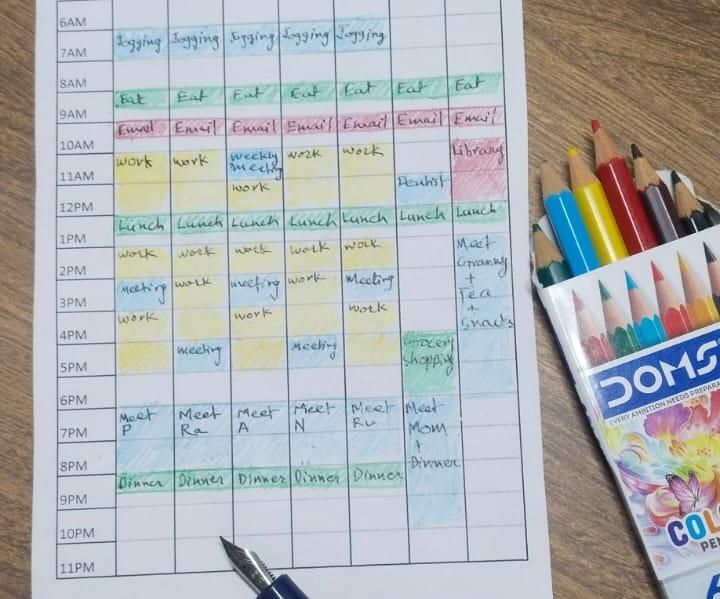 6AM
Jogging Jogging Jogging Jogging Jogging
7AM
8AM
Eat Eat Eat Eat Eat Eat Eat
9AM
Email Email Email Email Email Email Email
10AM
work work weekly meeting work work Library
11AM
work Dentist
12PM
Lunch Lunch Lunch Lunch Lunch Lunch Lunch
1PM
work work work work work Meet Granny + Tea + Snacks
2PM
Meeting work meeting work Meeting
3PM
work work work
4PM
meeting Meeting Grocery Shopping
5PM
6PM
Meet P Meet Ra Meet A Meet N Meet Ru Meet Mom + Dinner
7PM
8PM
Dinner Dinner Dinner Dinner Dinner
9PM
10PM
11PM
DOMS
EVERY AMBITION NEEDS PREPARA
COLO
PEN